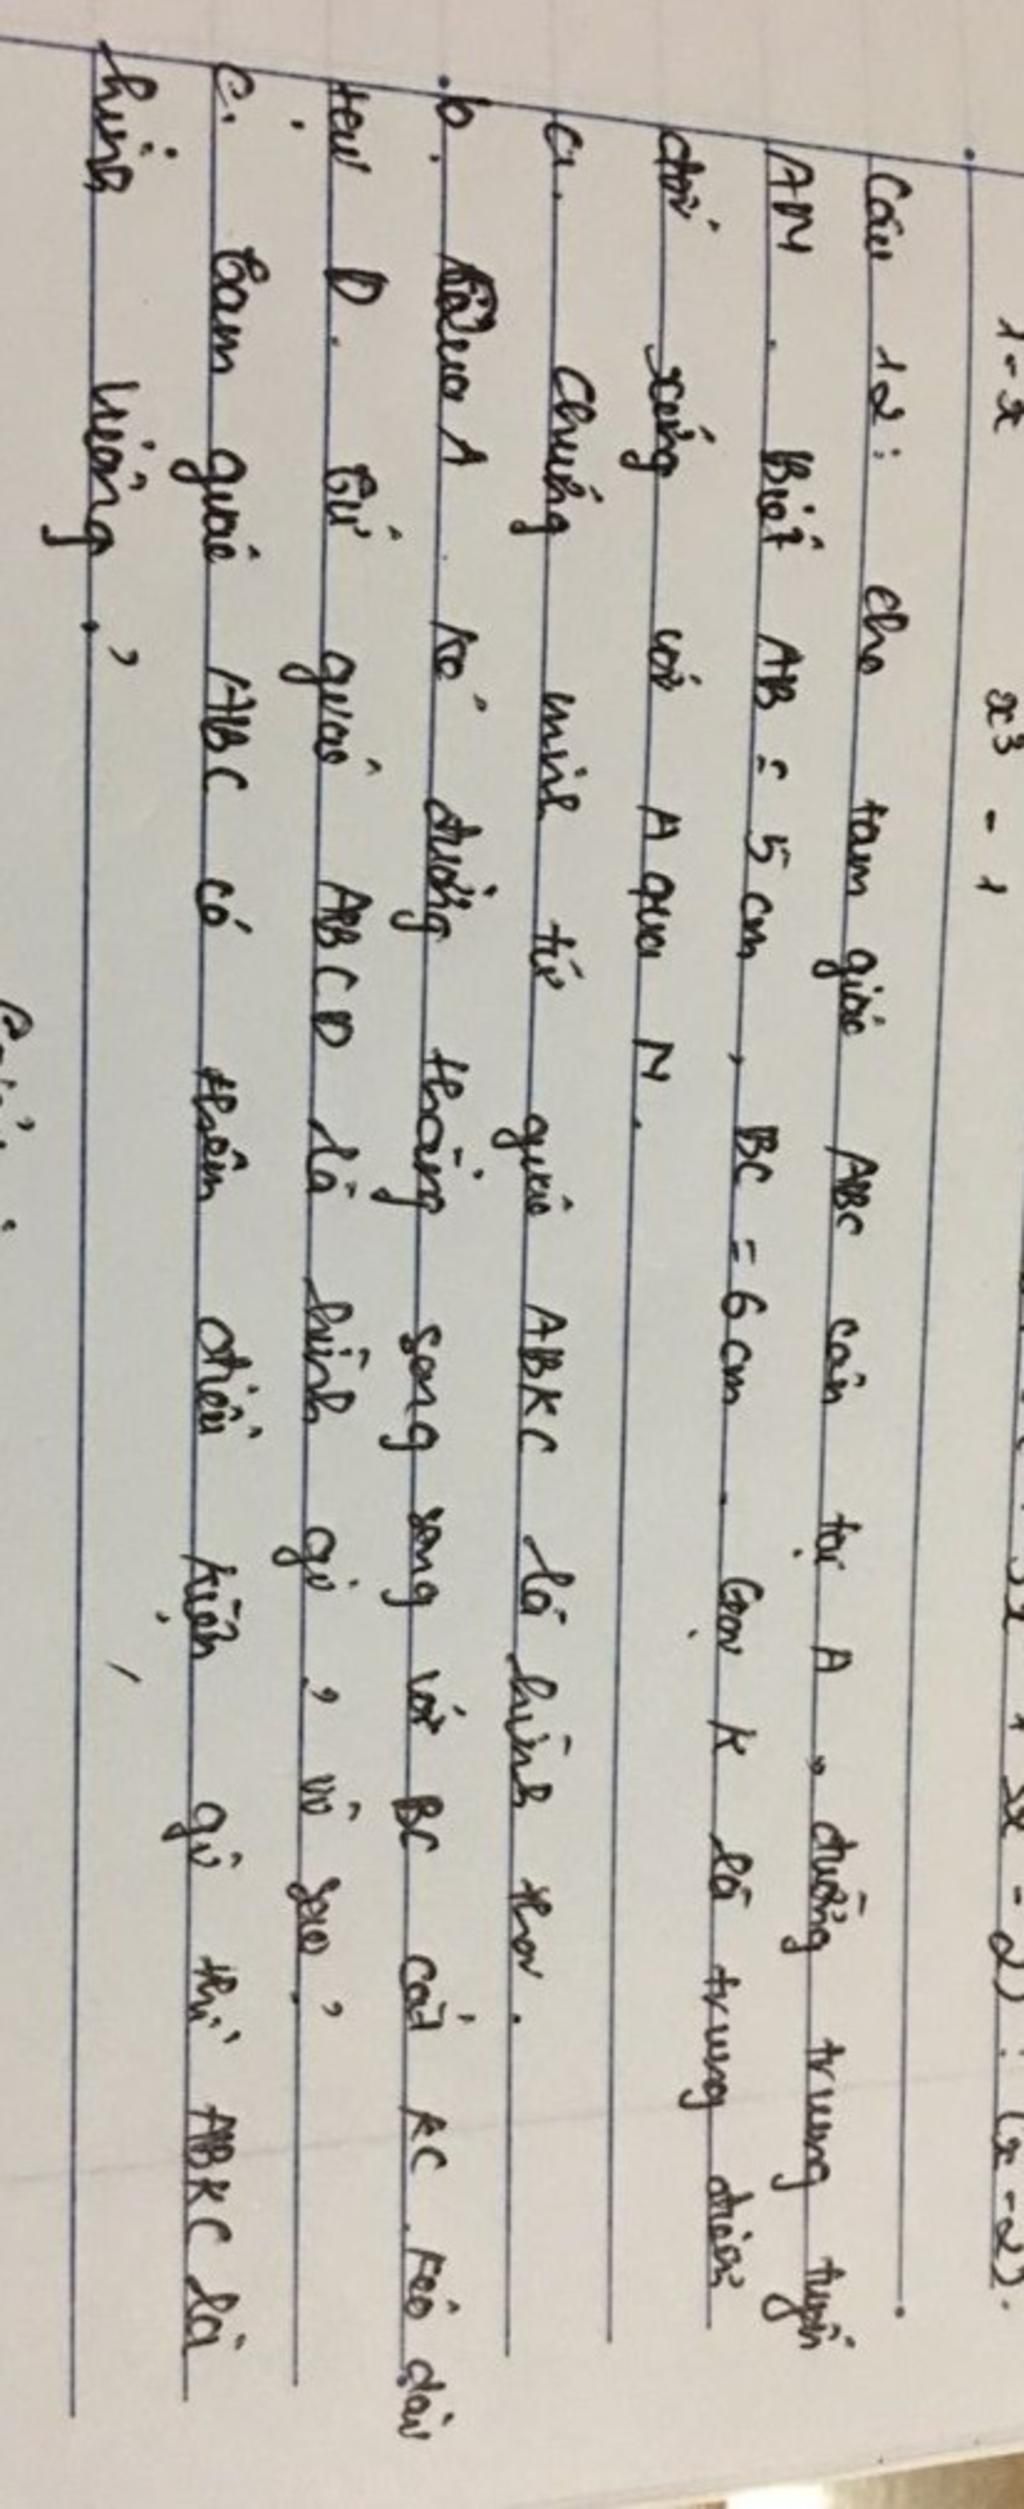 1-x x³ - 1
- 2) : (x-2).
Câu 12: Cho tam giác ABC cân tại A, đường trung tuyến
AM. Biết AB = 5cm, BC = 6cm. Gọi K là trung điểm
đối xứng với A qua M.
a. Chứng minh tứ giác ABKC là hình thoi.
b. Qua A kẻ đường thẳng song song với BC cắt KC kéo dài
tại D. Tứ giác ABCD là hình gì, vì sao?
c. Tam giác ABC có thêm điều kiện gì thì ABKC là
hình vuông?